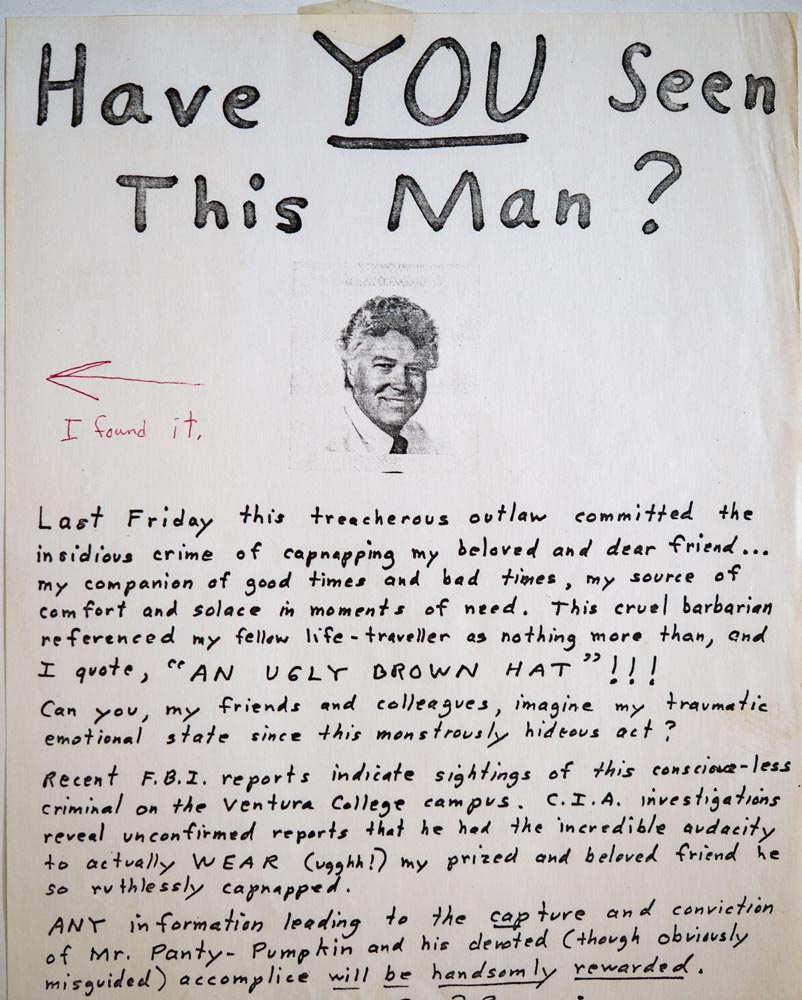 Have YOU Seen
This Man?
I found it.
Last Friday this treacherous outlaw committed the
insidious crime of capnapping my beloved and dear friend...
my companion of good times and bad times, my source of
comfort and solace in moments of need. This cruel barbarian
referenced my fellow life-traveller as nothing more than, and
I quote, "AN UGLY BROWN HAT"!!!
Can you, my friends and colleagues, imagine my traumatic
emotional state since this monstrously hideous act?
Recent F.B.I. reports indicate sightings of this conscious-less
criminal on the Ventura College campus. C.I.A. investigations
reveal unconfirmed reports that he had the incredible audacity
to actually WEAR (ugghh!) my prized and beloved friend he
so ruthlessly capnapped.
ANY information leading to the capture and conviction
of Mr. Panty-Pumpkin and his devoted (though obviously
misguided) accomplice will be handsomly rewarded.